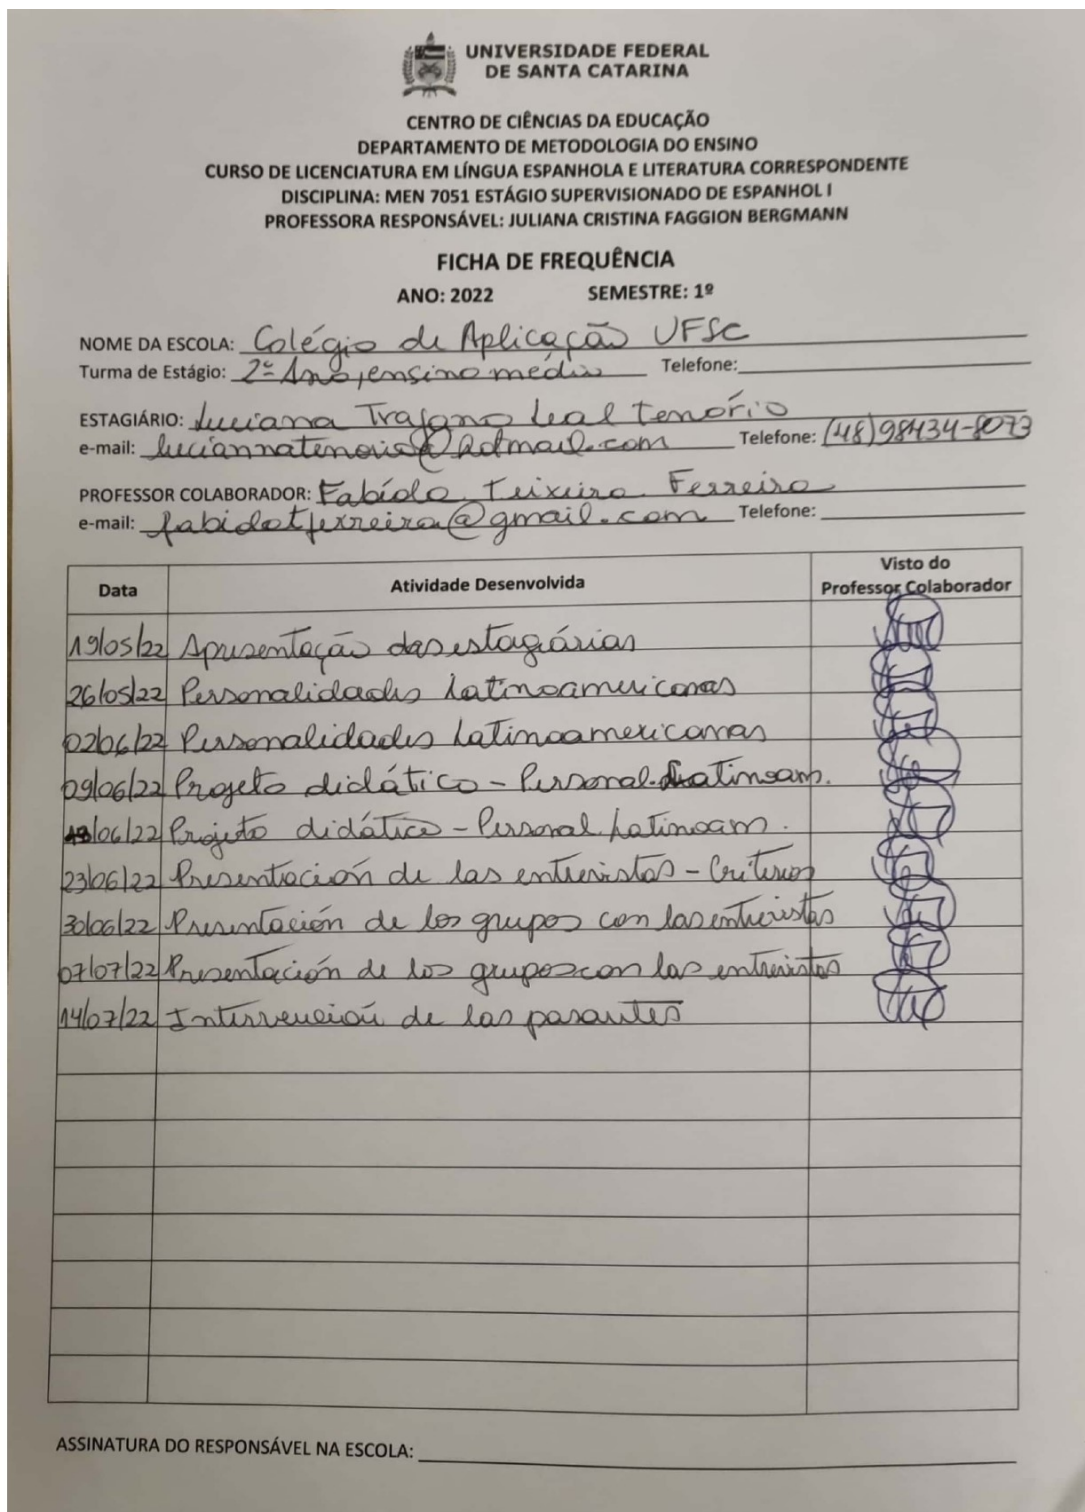 UNIVERSIDADE FEDERAL
DE SANTA CATARINA
CENTRO DE CIÊNCIAS DA EDUCAÇÃO
DEPARTAMENTO DE METODOLOGIA DO ENSINO
CURSO DE LICENCIATURA EM LÍNGUA ESPANHOLA E LITERATURA CORRESPONDENTE
DISCIPLINA: MEN 7051 ESTÁGIO SUPERVISIONADO DE ESPANHOL I
PROFESSORA RESPONSÁVEL: JULIANA CRISTINA FAGGION BERGMANN
FICHA DE FREQUÊNCIA
ANO: 2022 SEMESTRE: 1º
NOME DA ESCOLA: Colégio de Aplicação UFSC
Turma de Estágio: 2º Ano, ensino médio Telefone:
ESTAGIÁRIO: Luciana Trajano Leal Tenório
e-mail: luciannatenorio@hotmail.com Telefone: (48)98434-8073
PROFESSOR COLABORADOR: Fabíola Teixeira Ferreira
e-mail: fabiolatferreira@gmail.com Telefone:
Data Atividade Desenvolvida Visto do Professor Colaborador
19/05/22 Apresentação das estagiárias
26/05/22 Personalidades Latinoamericanas
02/06/22 Personalidades Latinoamericanas
09/06/22 Projeto didático - Personal. Latinoam.
/06/22 Projeto didático - Personal. Latinoam.
23/06/22 Presentación de las entrevistas - Criterios
30/06/22 Presentación de los grupos con las entrevistas
07/07/22 Presentación de los grupos con las entrevistas
14/07/22 Intervención de las pasantes
ASSINATURA DO RESPONSÁVEL NA ESCOLA: